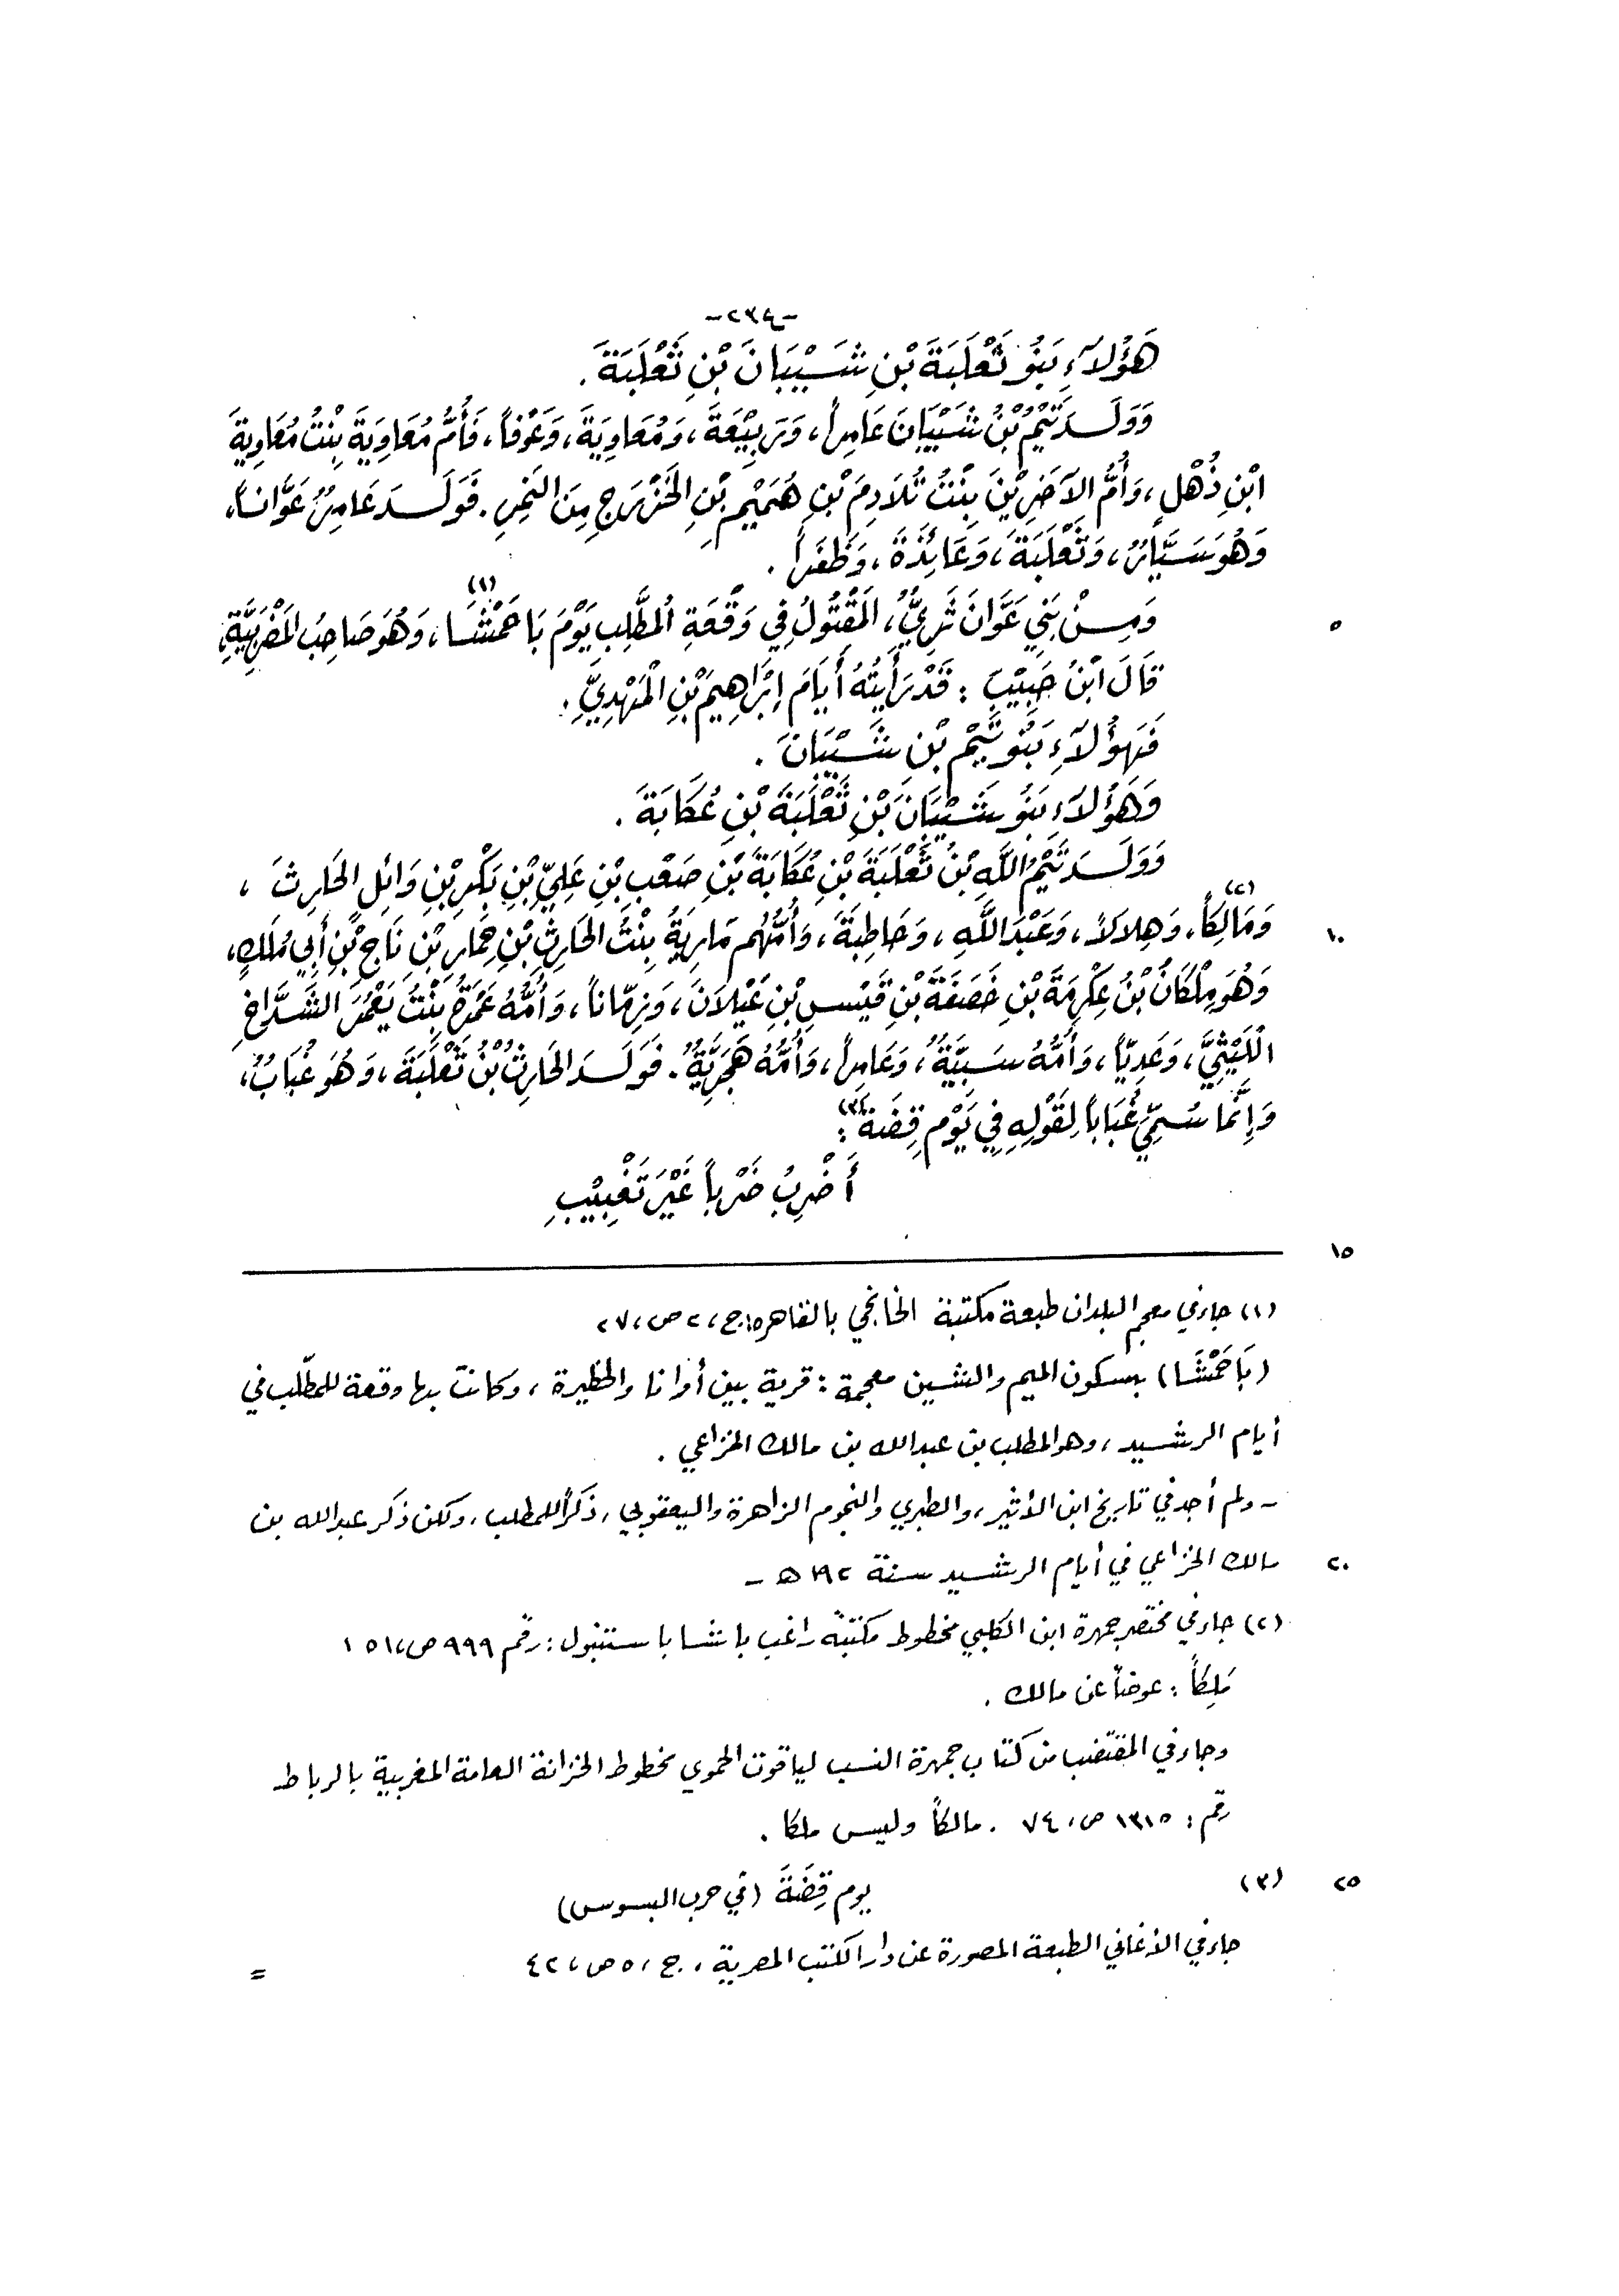 -٢٣٤-
هَؤُلاَءِ بَنُو ثَعْلَبَةَ بْنِ شَيْبَانَ بْنِ ثَعْلَبَةَ .
وَوَلَدَ تَيْمُ بْنُ شَيْبَانَ عَامِراً، وَرَبِيْعَةَ، وَمُعَاوِيَةَ، وَعَوْفاً، فَأُمُّ مُعَاوِيَةَ بِنْتُ مُعَاوِيَةَ
ابْنِ ذُهْلٍ، وَأُمُّ الآخَرِيْنَ بِنْتُ تُلَادِمَ بْنِ هُمَيْمِ بْنِ الخَزْرَجِ مِنَ النَّمِرِ . فَوَلَدَ عَامِرٌ عَوَّاناً،
وَهُوَ سَيَّارٌ، وَثَعْلَبَةَ، وَعَائِذَةَ، وَظَفَراً .
٥ وَمِنْ بَنِي عَوَّانَ شَرِيٌّ، المَقْتُولُ فِي وَقْعَةِ المُطَّلِبِ يَوْمَ بَاحَمْشَا(١)، وَهُوَ صَاحِبُ
قَالَ ابْنُ حَبِيْبَ : قَدْ رَأَيْتُهُ أَيَّامَ إِبْرَاهِيمَ بْنِ الْمَهْدِيِّ .
فَهَؤُلاَءِ بَنُو تَيْمِ بْنِ شَيْبَانَ .
وَهَؤُلاَءِ بَنُو شَيْبَانَ بْنِ ثَعْلَبَةَ بْنِ عُكَابَةَ .
وَوَلَدَ تَيْمُ اللَّهِ بْنُ ثَعْلَبَةَ بْنِ عُكَابَةَ بْنِ صَعْبِ بْنِ عَلِيِّ بْنِ بَكْرِ بْنِ وَائِلٍ الحَارِثَ ،
١٠ وَمَالِكاً(٢)، وَهِلاَلاً، وَعَبْدَ اللَّهِ، وَحَاطِبَةَ، وَأُمُّهُم مَارِيَةُ بِنْتُ الحَارِثِ بْنِ حِمَارِ بْنِ نَاجِ بْنِ أَبِي مَلَكٍ،
وَهُوَ مِلْكَانُ بْنُ عِكْرِمَةَ بْنِ خَصَفَةَ بْنِ قَيْسِ بْنِ عَيْلاَنَ، وَزِمَّاناً، وَأُمُّهُ عَمْرَةُ بِنْتُ يَعْمُرَ الشَّدَّاخِ
اللَّيْثِيِّ، وَعَدِيّاً، وَأُمُّهُ سَبِيَّةٌ، وَعَامِراً، وَأُمُّهُ هَجَرِيَّةٌ. فَوَلَدَ الحَارِثُ بْنُ ثَعْلَبَةَ، وَهُوَ غُبَابٌ،
وَإِنَّمَا سُمِّيَ غُبَاباً لِقَوْلِهِ فِي يَوْمِ قِضَةَ(٣) :
أَضْرِبُ ضَرْباً غَيْرَ تَغْبِيْبِ
١٥
(١) جاء في معجم البلدان طبعة مكتبة الخانجي بالقاهرة ج، ٢ ص، ٢٧
(بَاحَمْشَا) بسكون الميم والشين معجمة : قرية بين أوانا والحظيرة، وكانت بها وقعة للمطّلب في
أيام الرشيد، وهو المطلب بن عبدالله بن مالك الخزاعي .
- ولم أجد في تاريخ ابن الأثير، والطبري والنجوم الزاهرة واليعقوبي، ذكراً للمطلب، ولكن ذكر عبدالله بن
٢٠ مالك الخزاعي في أيام الرشيد سنة ١٩٢ هـ -
(٢) جاء في مختصر جمهرة ابن الكلبي مخطوط مكتبة راغب باشا باستنبول : رقم ٩٩٩ ص،
مَلِكاً : عوضاً عن مالك .
وجاء في المقتضب من كتاب جمهرة النسب لياقوت الحموي مخطوط الخزانة العامة المغربية بالرباط
رقم : ١٣١٥ ص، ٧٤ . مالكاً وليس ملكا .
٢٥ (٣) يوم قِضَةَ (في حرب البسوس)
جاء في الأغاني الطبعة المصورة عن دار الكتب المصرية، ج، ٥ ص، ٤٢ =